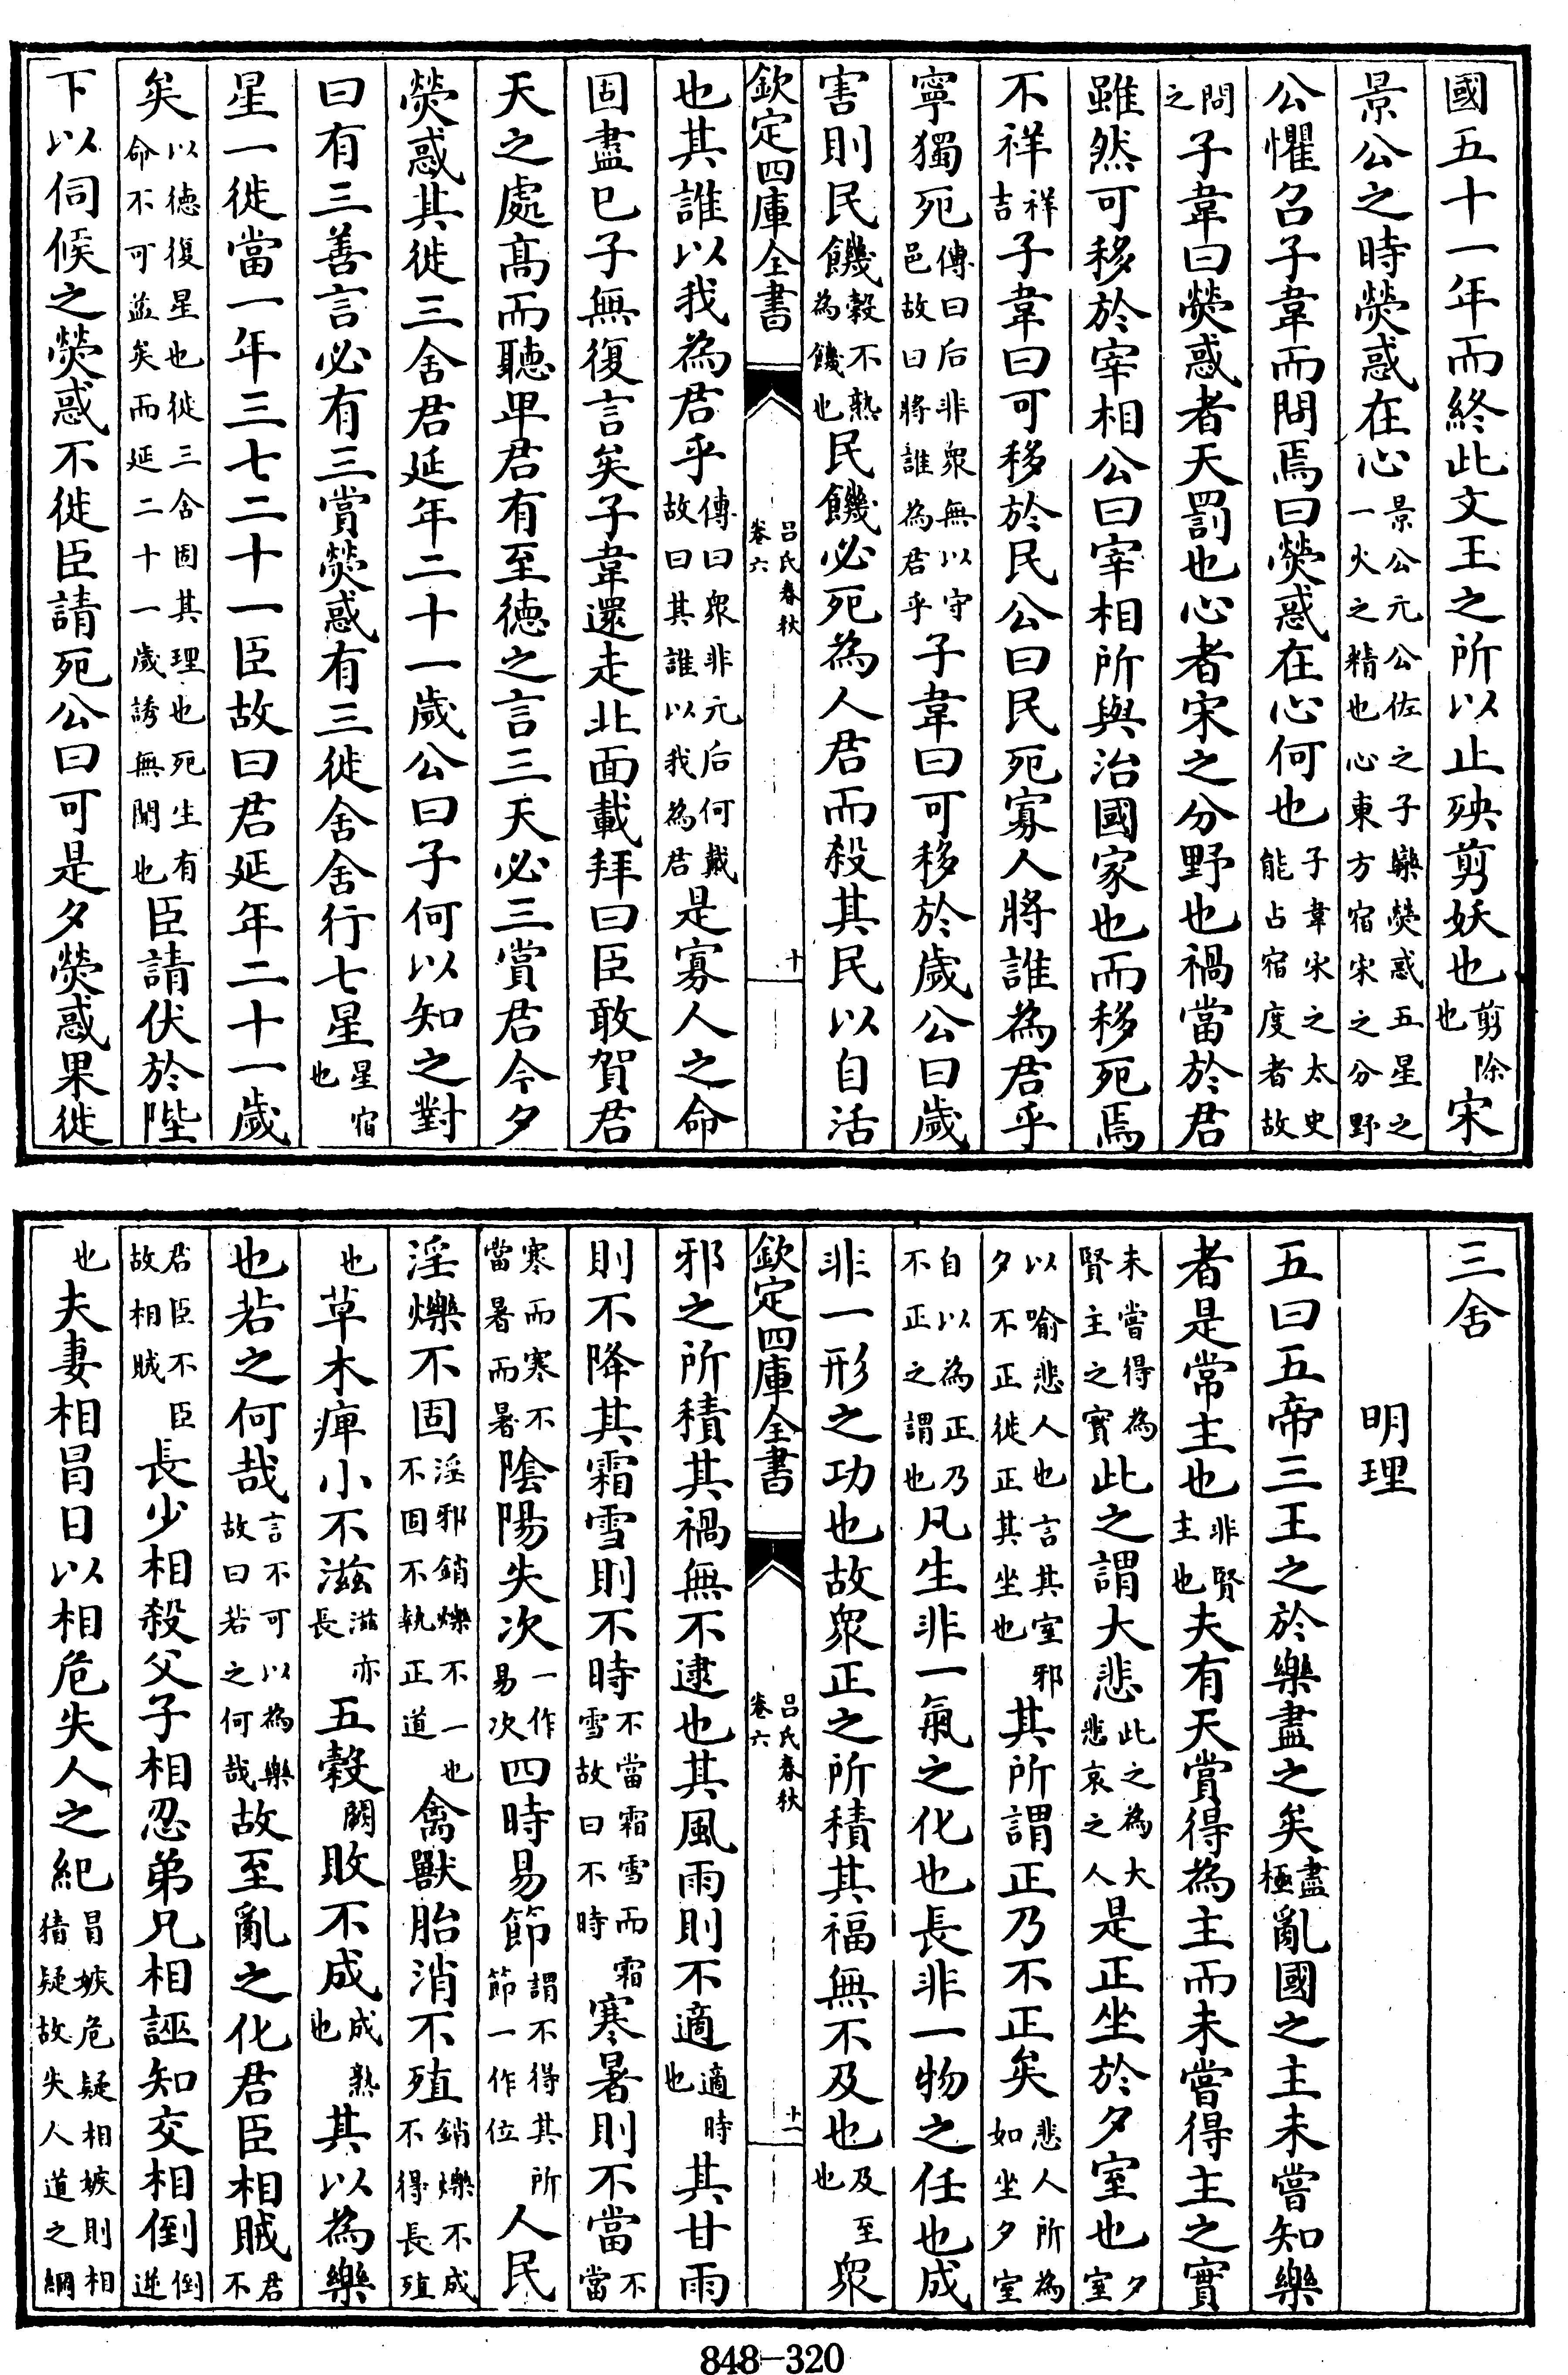 國五十一年而終此文王之所以止殃剪妖也剪除也宋
景公之時熒惑在心景公元公佐之子欒熒惑五星之一火之精也心東方宿宋之分野
公懼召子韋而問焉曰熒惑在心何也子韋宋之太史能占宿度者故
問之子韋曰熒惑者天罰也心者宋之分野也禍當於君
雖然可移於宰相公曰宰相所與治國家也而移死焉
不祥祥吉子韋曰可移於民公曰民死寡人將誰為君乎
寧獨死傳曰后非衆無以守邑故曰將誰為君乎子韋曰可移於歲公曰歲
害則民饑穀不熟為饑也民饑必死為人君而殺其民以自活
欽定四庫全書 呂氏春秋卷六 十
也其誰以我為君乎傳曰衆非元后何戴故曰其誰以我為君是寡人之命
固盡已子無復言矣子韋還走北面載拜曰臣敢賀君
天之處高而聽卑君有至德之言三天必三賞君今夕
熒惑其徙三舍君延年二十一歲公曰子何以知之對
曰有三善言必有三賞熒惑有三徙舍舍行七星星宿也
星一徙當一年三七二十一臣故曰君延年二十一歲
矣以德復星也徙三舍固其理也死生有命不可益矣而延二十一歲誘無聞也臣請伏於陛
下以伺候之熒惑不徙臣請死公曰可是夕熒惑果徙
三舍
明理
五曰五帝三王之於樂盡之矣盡極亂國之主未嘗知樂
者是常主也非賢主也夫有天賞得為主而未嘗得主之實
未嘗得為賢主之實此之謂大悲此之為大悲哀之人是正坐於夕室也夕室
以喻悲人也言其室邪夕不正徙正其坐也其所謂正乃不正矣悲人所為如坐夕室
自以為正乃不正之謂也凡生非一氣之化也長非一物之任也成
非一形之功也故衆正之所積其福無不及也及至也衆
欽定四庫全書 呂氏春秋卷六 十一
邪之所積其禍無不逮也其風雨則不適適時也其甘雨
則不降其霜雪則不時不當霜雪而霜雪故曰不時寒暑則不當不當
寒而寒不當暑而暑陰陽失次一作易次四時易節謂不得其所節一作位人民
淫爍不固淫邪銷爍不一不固不執正道也禽獸胎消不殖銷爍不成不得長殖
也草木庳小不滋滋亦長五穀闕敗不成成熟也其以為樂
也若之何哉言不可以為樂故曰若之何哉故至亂之化君臣相賊君不
君臣不臣故相賊長少相殺父子相忍弟兄相誣知交相倒倒逆
也夫妻相冒日以相危失人之紀冒嫉危疑相嫉則相猜疑故失人道之綱
848-320